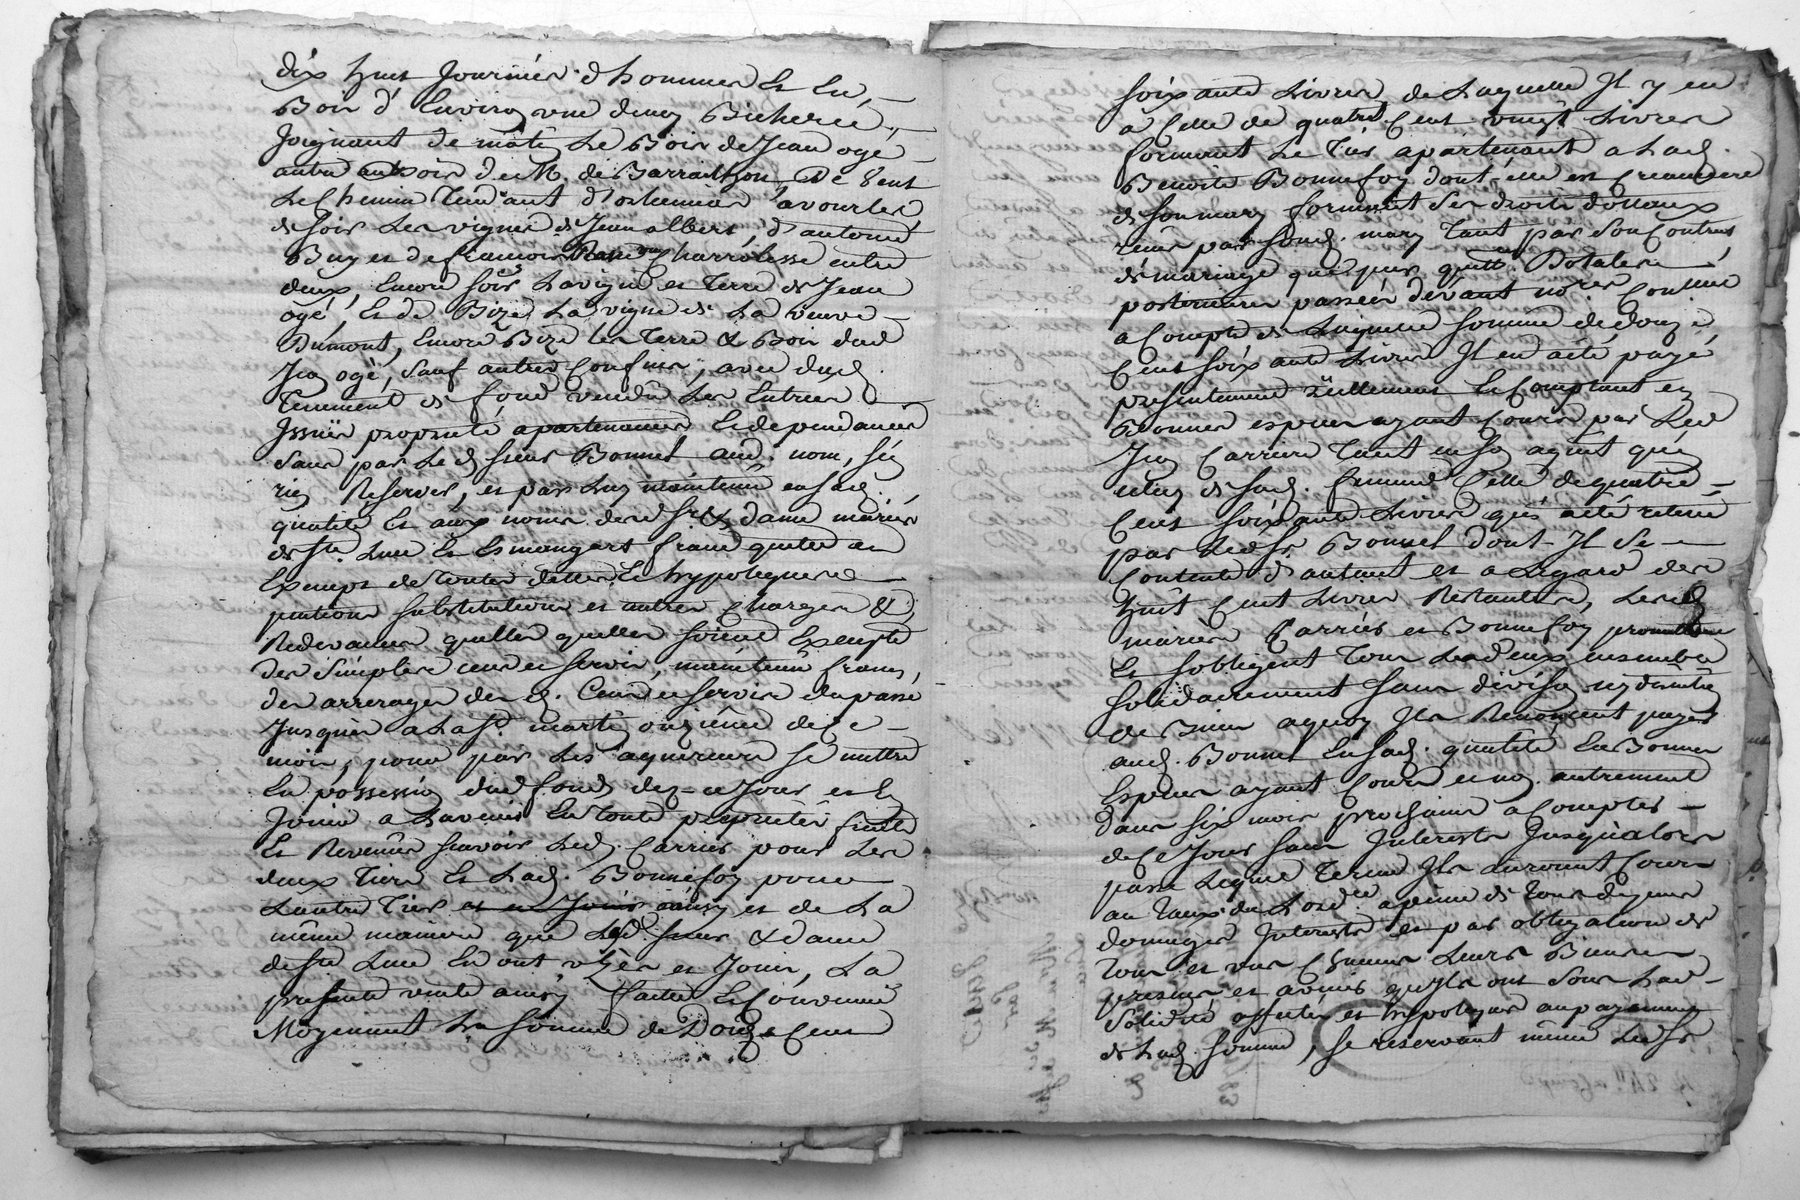 dix huit Journées d'hommes Et En
Bois d'Environ une demy Bicherée,
Joignant de matin Le Bois de Jean ogé
autre au bois de M. de Barrailhon, De Vent
Le Chemin Tendant d' a vourles
de soir Les vignes de Jean albert, d'antoine
Buy et de francois Charrolesse entre
deux, Encore soir La vigne et Terre de Jean
ogé Et de Bize La vigne de La veuve
Dumont, Encore Bize les Terre & Bois dud
Jean ogé, sauf autres Confins, avec dud.
Tenement de fond vendu Les Entrées
Issues proprieté apartenances Et dependances
sans par Led. sieur Bonnet aud. nom, s'en
rien Reserver, et par Luy maintenu en sad.
qualité Et aux noms desd Sr. & dame mariés
de ste Luce Et Esmangart franc quitte et
Exempt de Toutes dettes, Et hypoteques
pations substitutions et autres Charges &
Redevances quelles quelles soient Excepté
des simples cens et servis, maintenu francs
des arrerages desd. Cens et servis du passé
Jusques a La st. martin onzieme de Ce
mois, pour par Les aquereurs se mettre
En possession dud fonds dez-ce Jour et En
Jouir a Lavenir En Toute proprieté fruits
Et Revenus scavoir Led. Carrier pour Les
deux Tiers Et Lad. Bonnefoy pour
Lautre Tiers et en Jouir ainsy et de La
même maniere que Lesd. sieur & dame
de ste Luce En ont usés et Jouis, La
presente vente ainsy faitte Et Convenue
Moyennant La somme de Douze Cent
soixante Livres, de Laquelle Il y en
a Celle de quatre Cent vingt Livres
formant Le Tiers apartenant a Lad.
Benoite Bonnefoy dont elle est Creanciere
de son mary formant ses droits dottaux
reçus par sond. mary Tant par son Contrat
de mariage que par quitt.ces Dotales
posterieures passées devant no.res Connue
a Compte de Laquelle somme de douze
Cent soixante Livres Il en a été payé
presentement réellement Et Comptant en
Bonnes especes ayant Cours par Led
Jean Carrier Tant en son agent qu'en
celuy de sad. femme Celle de quatre
Cent soixante Livres qui a été retirée
par Led Sr. Bonnet dont Il se
Contente d'autant et a Legard des
huit Cent Livres Restantes, Lesd
mariés Carrier et Bonnefoy promettent
Et sobligent Tous Les deux ensemble
solidairement sans division ny discution
de Biens aquoy Ils Renoncent payer
aud. Bonnet En sad. qualité En Bonnes
Especes ayant Cours et non autrement
dans six mois prochains a Compter
de Ce Jour sans Interests Jusqualors
passé Lequel Terme Ils auront Cours
au Taux de Lord.ce a peine de Tous depens
domages Interests et par obligation de
Tous et uns Chacuns Leurs Biens
presents et avenir quils ont sous Lad
solidité affectés et hypoteques au payement
de Lad. somme, se reservant même Led Sr